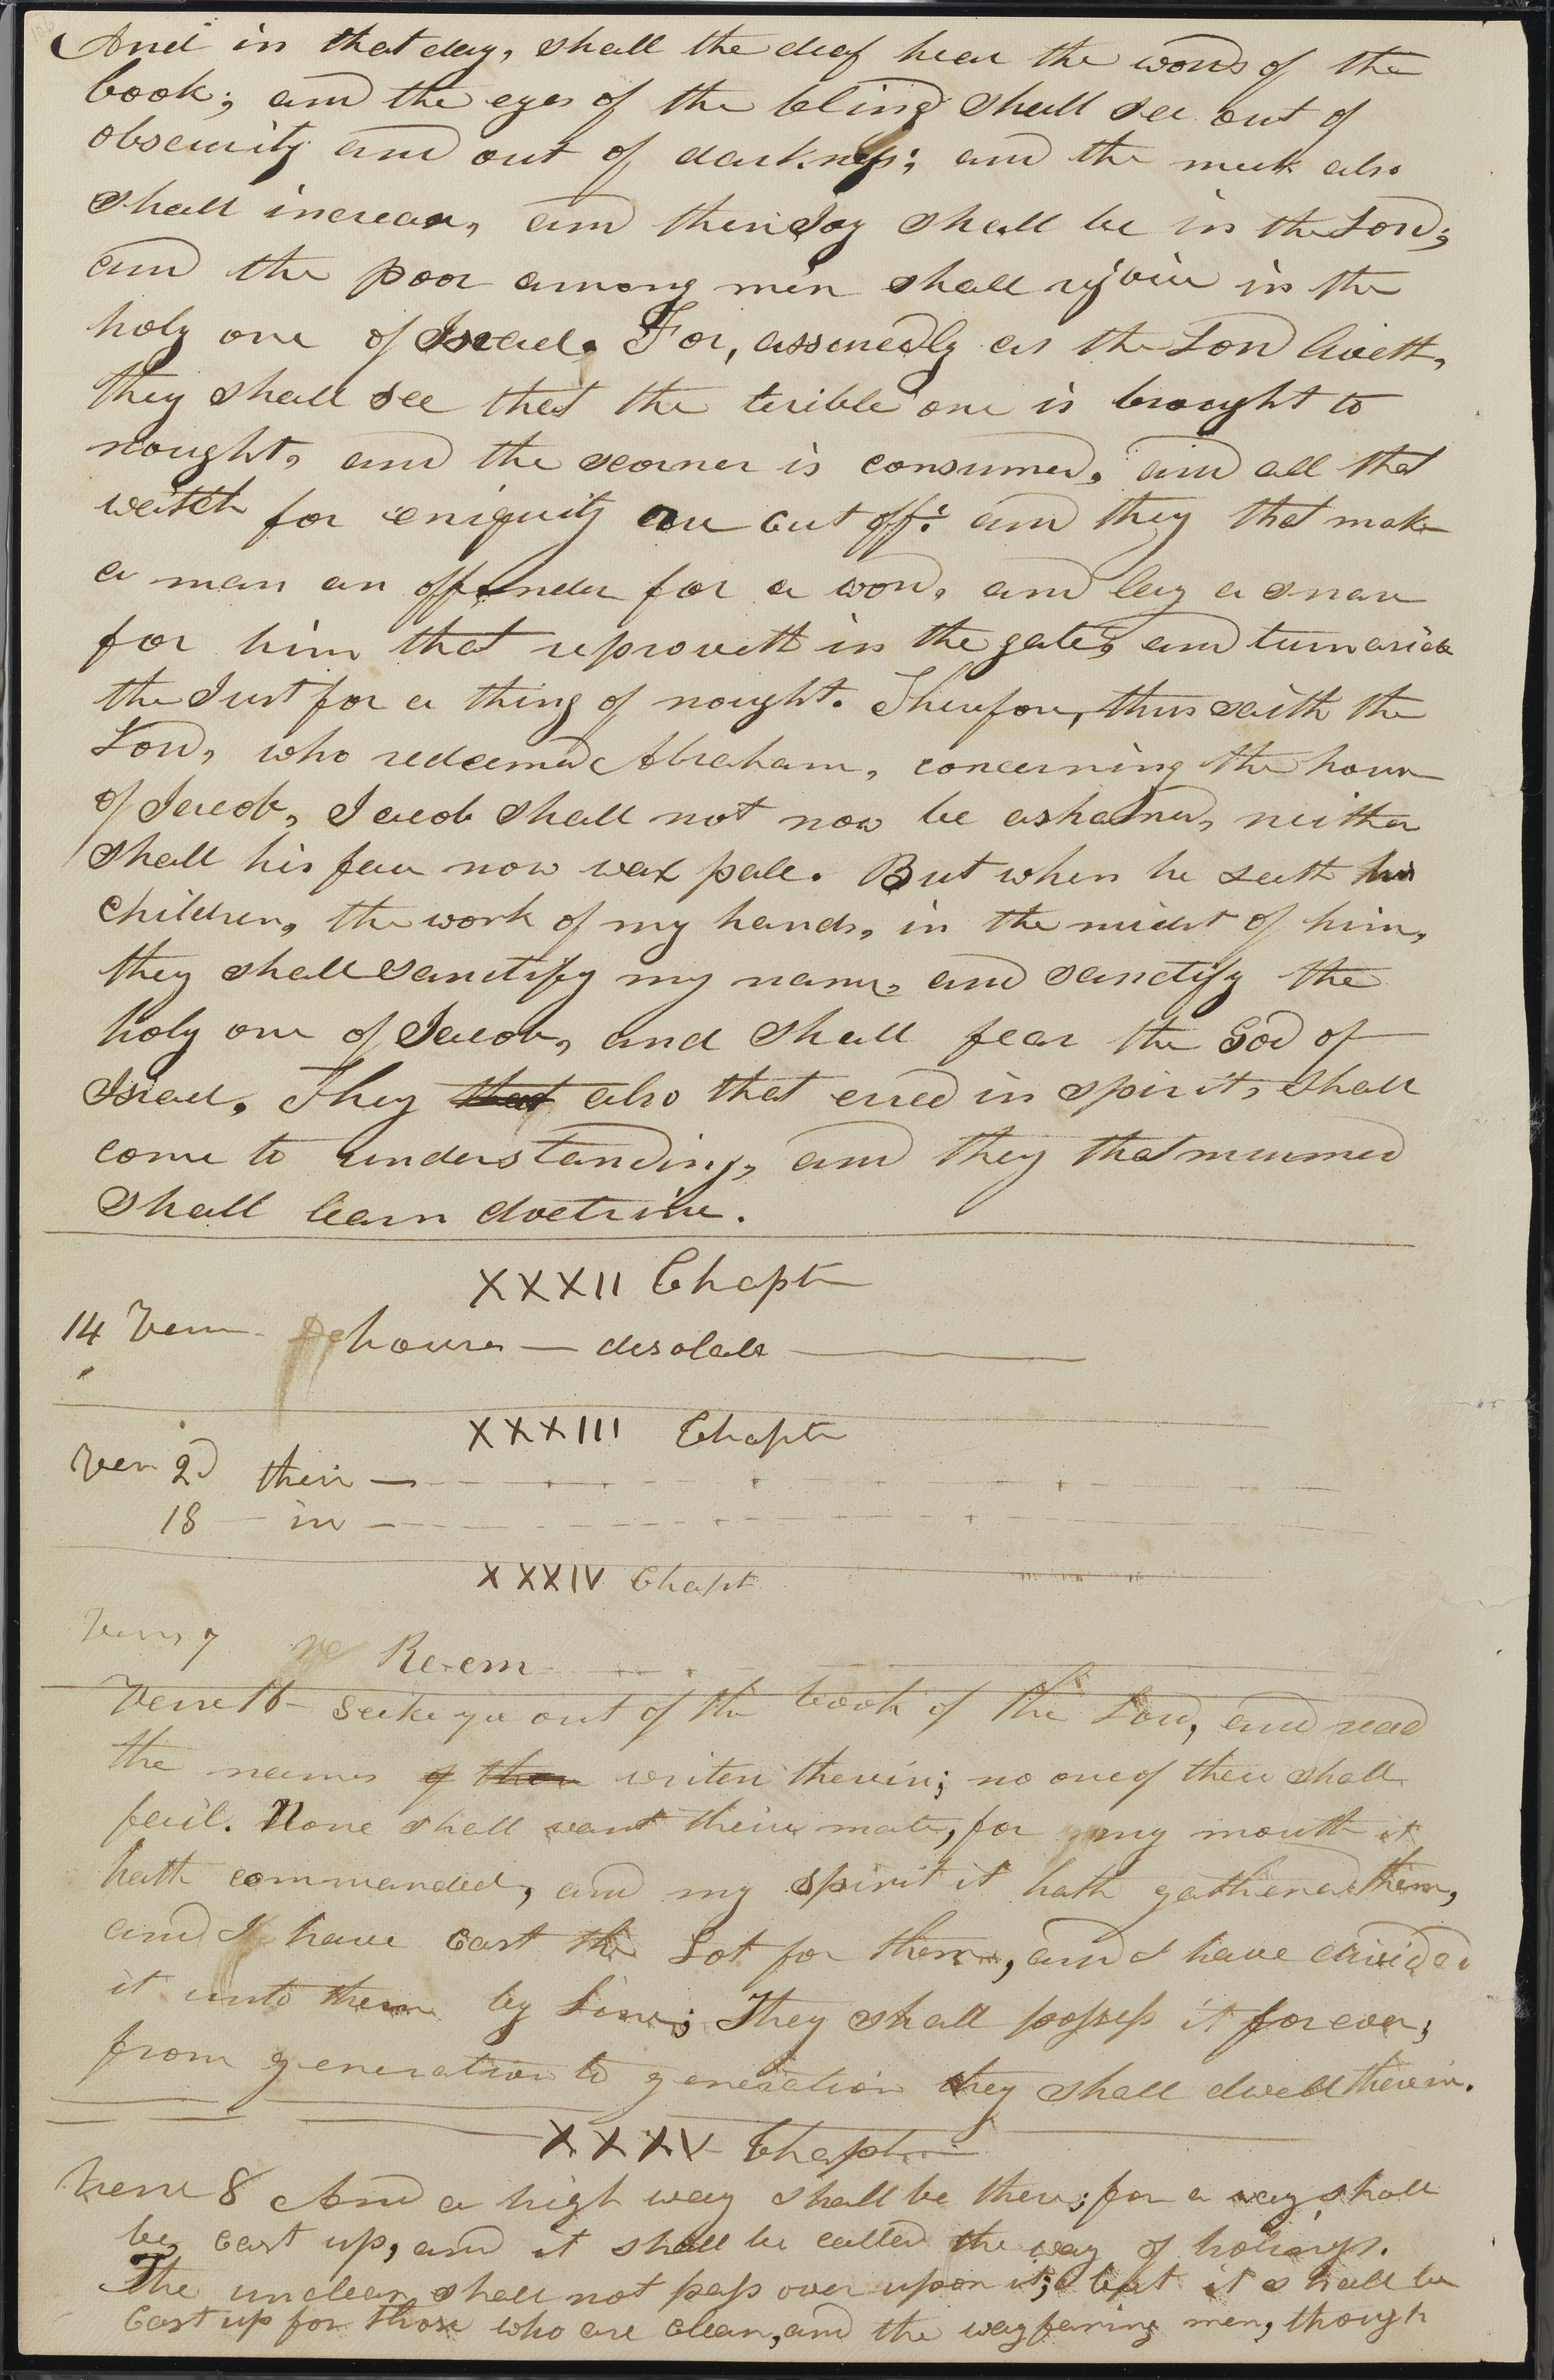 And in that day, shall the deaf hear the words of the
book; and the eyes of the blind shall see out of
obscurity and out of darkness; and the meek also
shall increase, and their Joy shall be in the Lord;
and the poor among men shall rejoice in the
holy one of Israel. For, assuredly as the Lord liveth,
they shall see that the terible one is brought to
nought, and the scorner is consumed, and all that
watch for eniquity are cut off: and they that make
a man an offender for a word, and lay a snare
for him that reproveth in the gate, and turn aside
the Just for a thing of nought. Therefore, thus saith the
Lord, who redeemed Abraham, concerning the house
of Jacob, Jacob shall not now be ashamed, neither
shall his face now wax pale. But when he seeth his
children, the work of my hands, in the midst of him,
they shall sanctify my name, and sanctify the
holy one of Jacob, and shall fear the God of
Israel. They that also that erred in spirit, shall
come to understanding, and they that murmured
shall learn doctrine.
XXXII Chapter
14 Verse houses — desolate
XXXIII Chapter
Ver 2d their —
18 — in —
XXXIV Chapt
Verse 7 Re-em
Verse 16 seek ye out of the book of the Lord, and read
the names of them writen therein; no one of these shall
fail. None shall want their mate, for my mouth it
hath commanded, and my spirit it hath gathered them,
and I have cast the Lot for them, and I have divided
it unto them by line; They shall possess it forever;
from generation to generation they shall dwell therein.
XXXV Chapter
Verse 8 And a high way shall be there; for a way shall
be cast up, and it shall be called the way of holiness.
The unclean shall not pass over upon it; but it shall be
Cast up for those who are clean, and the wayfaring men, though